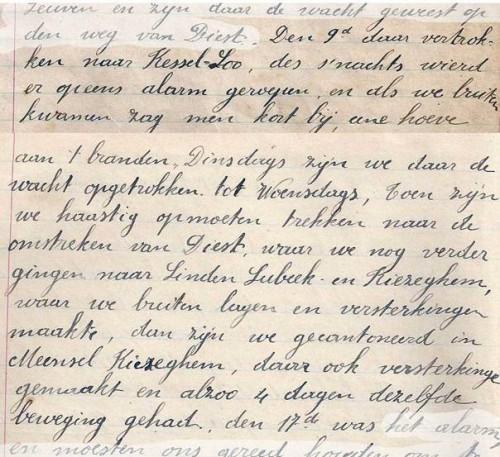 Leuven en zijn daar de wacht geweest op
den weg van Diest. Den 9d daar vertrok-
ken naar Kessel-Loo, des s'nachts wierd
er opeens alarm geroepen, en als we buiten
kwamen zag men kort bij, ene hoeve
aan 't branden, Dinsdags zijn we daar de
wacht opgetrokken tot Woensdags, toen zijn
we haastig opmoeten trekken naar de
omstreken van Diest, waar we nog verder
gingen naar Linden Lubeek en Kiezeghem,
waar we buiten lagen en versterkingen
maakte, dan zijn we gecantoneerd in
Meensel Kiezeghem, daar ook versterkinge
gemaakt en alzoo 4 dagen dezelfde
beweging gehad. den 17de was het alarm
en moesten ons gereed houden om